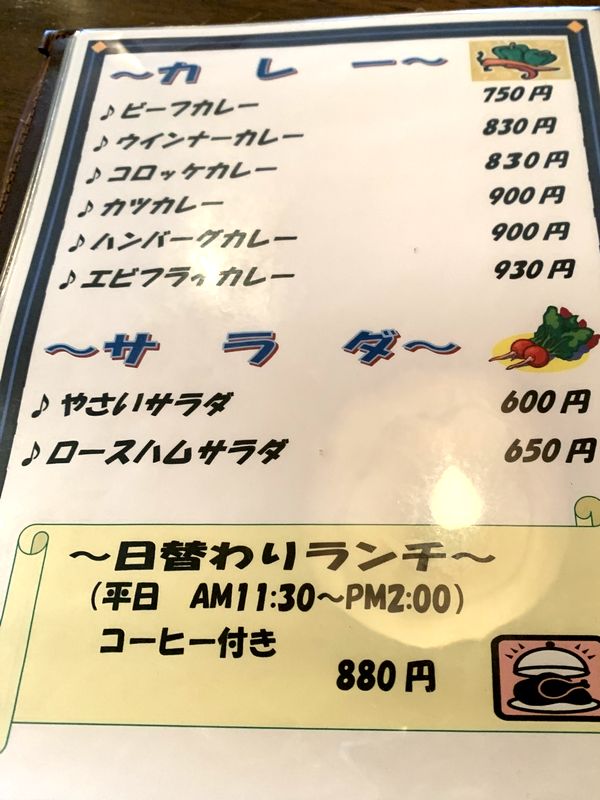 〜カレー〜
♪ビーフカレー 750円
♪ウインナーカレー 830円
♪コロッケカレー 830円
♪カツカレー 900円
♪ハンバーグカレー 900円
♪エビフライカレー 930円
〜サラダ〜
♪やさいサラダ 600円
♪ロースハムサラダ 650円
〜日替わりランチ〜
(平日 AM11:30〜PM2:00)
コーヒー付き
880円